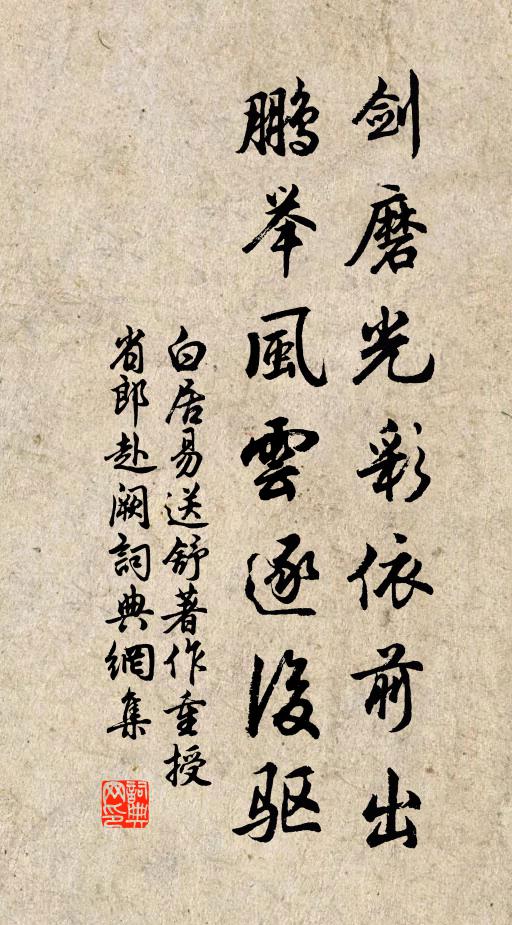 剑磨光彩依前出
鹏举風雲逐後驱
白居易送舒著作重授
省郎赴阙詞典網集
詞典网印